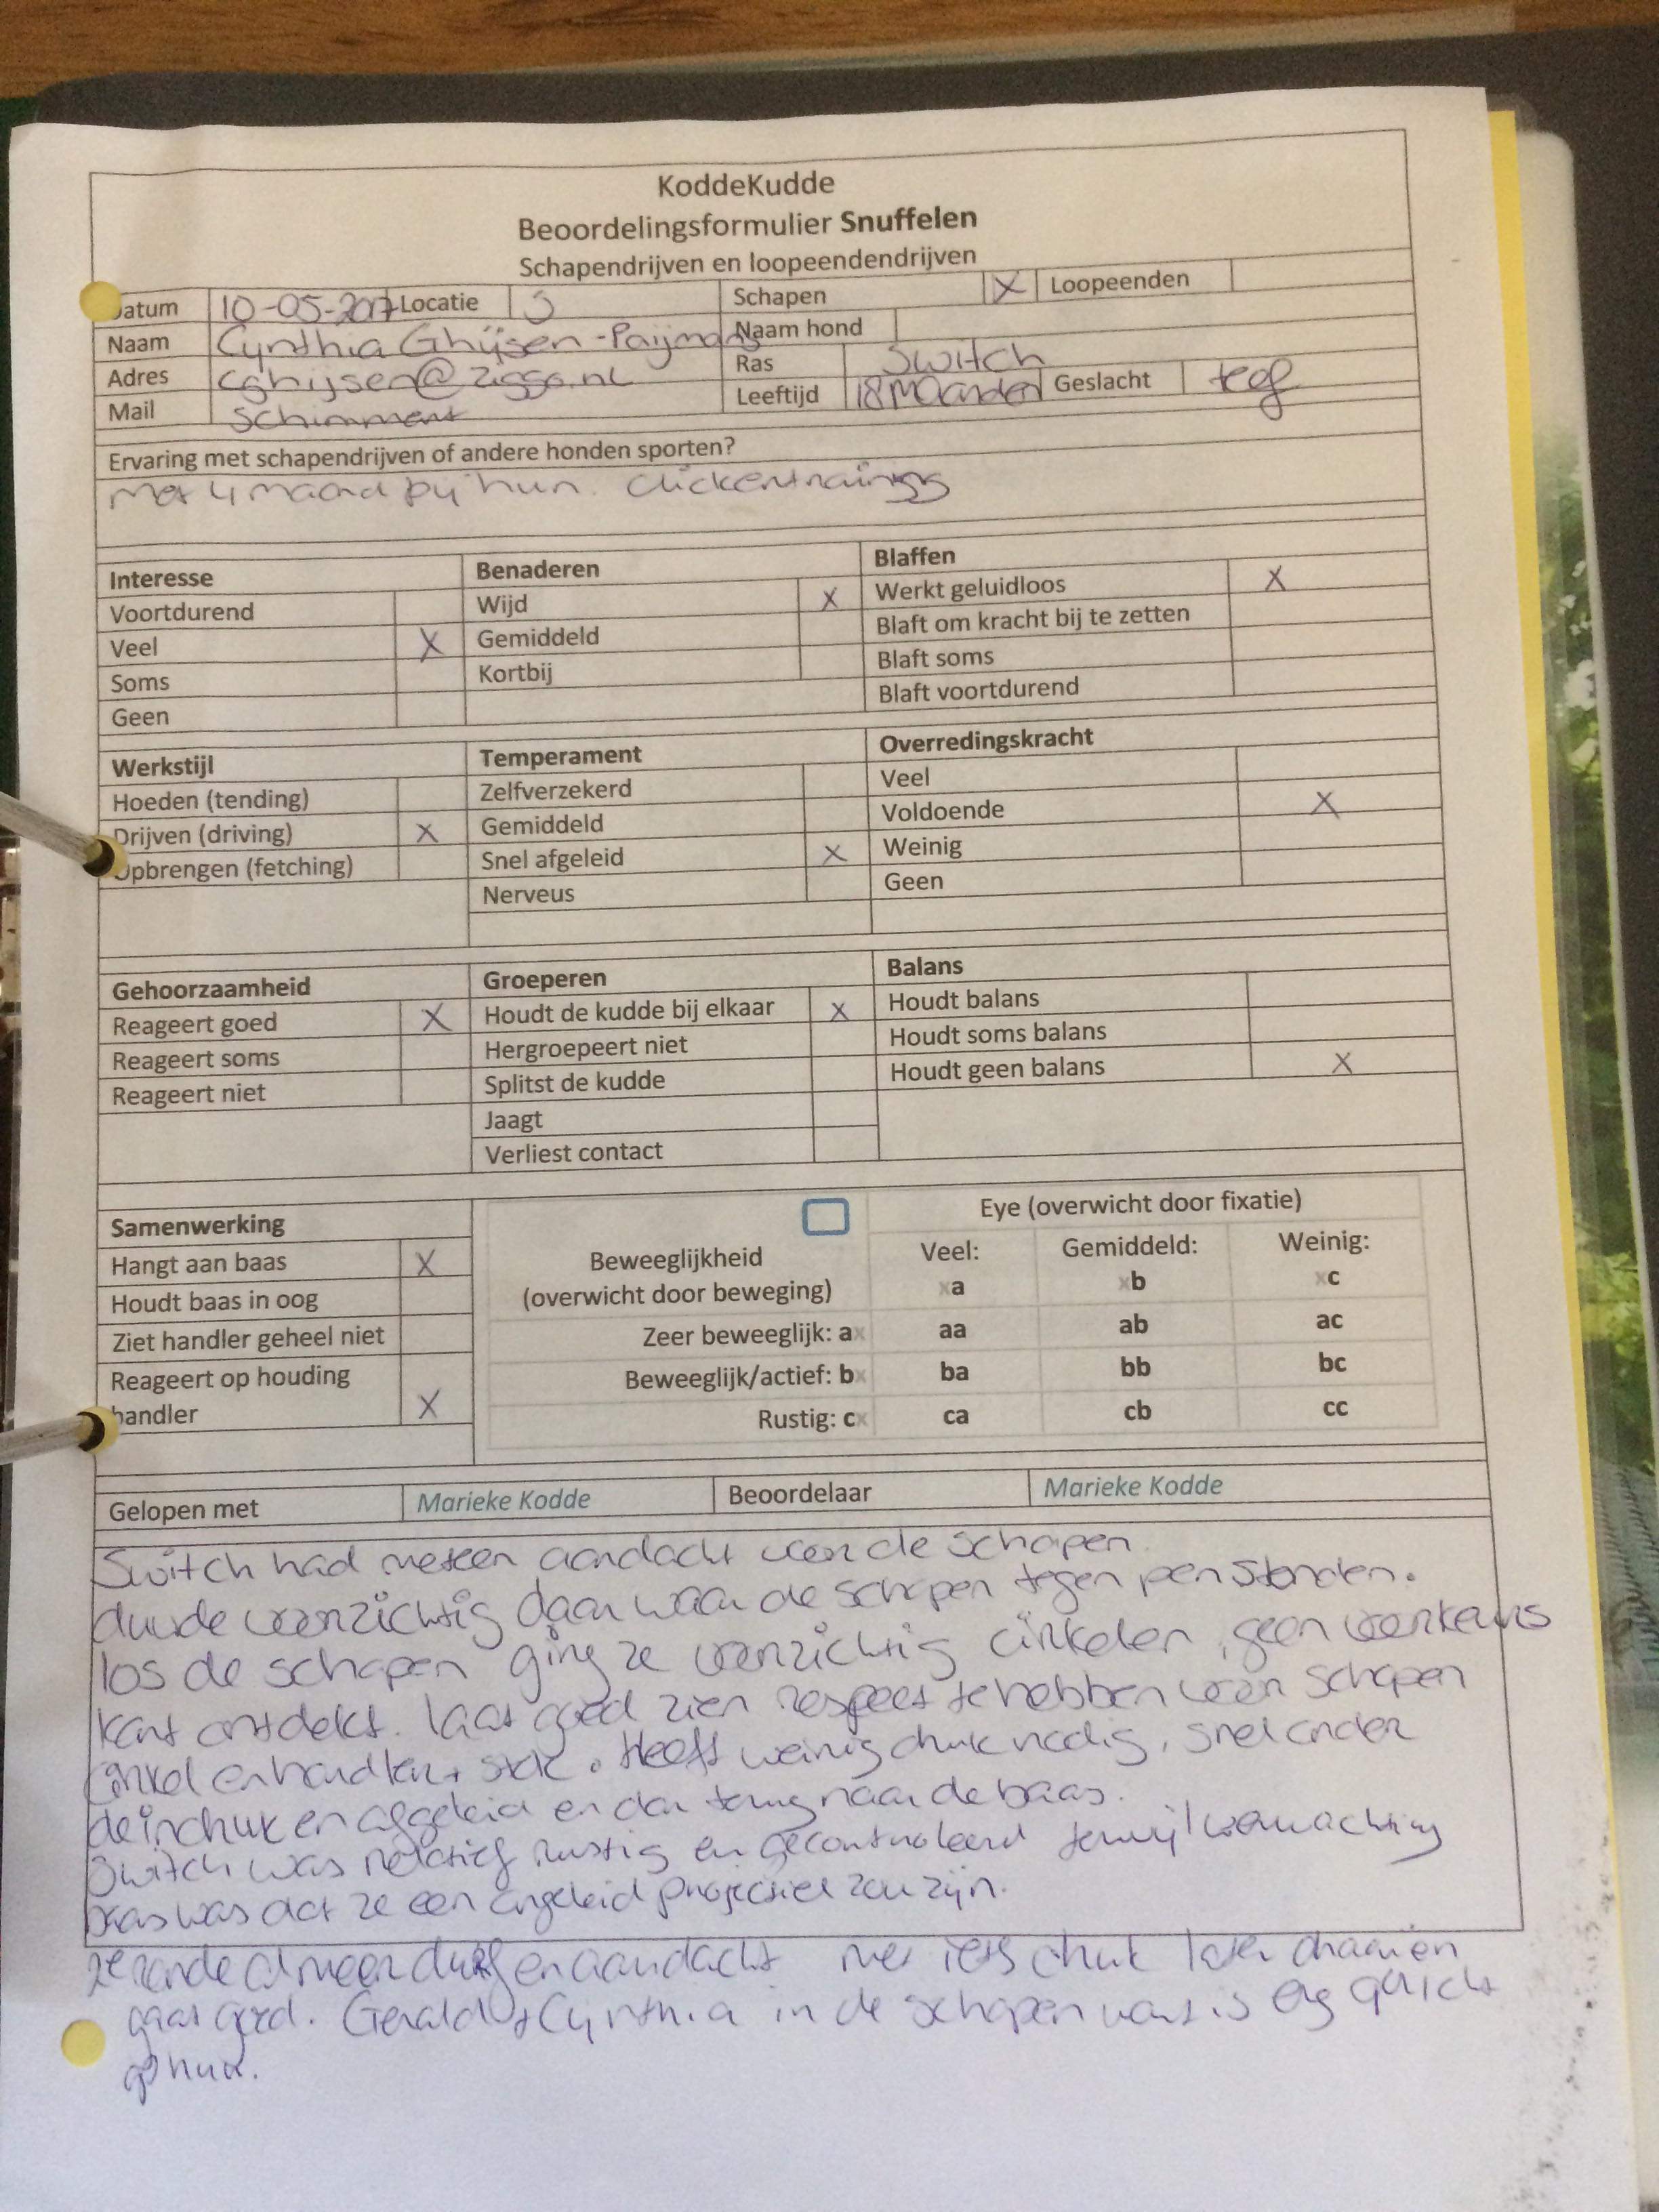 KoddeKudde
Beoordelingsformulier Snuffelen
Schapendrijven en loopeendendrijven
Datum 10-05-2017 Locatie S Schapen X Loopeenden
Naam Cynthia Ghijsen-Paijmans Naam hond
Adres cghijsen@ziggo.nl Ras Switch
Mail Schimmert Leeftijd 18 maanden Geslacht teef
Ervaring met schapendrijven of andere honden sporten?
Met 4 maand bij hun. Clickertraining
Interesse Benaderen Blaffen
Voortdurend Wijd X Werkt geluidloos X
Veel X Gemiddeld Blaft om kracht bij te zetten
Soms Kortbij Blaft soms
Geen Blaft voortdurend
Werkstijl Temperament Overredingskracht
Hoeden (tending) Zelfverzekerd Veel
Drijven (driving) X Gemiddeld Voldoende X
Opbrengen (fetching) Snel afgeleid X Weinig
Nerveus Geen
Gehoorzaamheid Groeperen Balans
Reageert goed X Houdt de kudde bij elkaar X Houdt balans
Reageert soms Hergroepeert niet Houdt soms balans
Reageert niet Splitst de kudde Houdt geen balans X
Jaagt
Verliest contact
Samenwerking Eye (overwicht door fixatie)
Hangt aan baas X Beweeglijkheid Veel: Gemiddeld: Weinig:
Houdt baas in oog (overwicht door beweging) xa xb xc
Ziet handler geheel niet Zeer beweeglijk: ax aa ab ac
Reageert op houding Beweeglijk/actief: bx ba bb bc
handler X Rustig: cx ca cb cc
Gelopen met Marieke Kodde Beoordelaar Marieke Kodde
Switch had meteen aandacht voor de schapen.
duwde voorzichtig daar waar de schapen tegen pen stonden.
los de schapen ging ze voorzichtig cirkelen, geen voorkeurs
kant ontdekt. laat goed zien respect te hebben voor schapen
cirkel en handler + stok. Heeft weinig druk nodig, snel onder
de indruk en afgeleid en dan terug naar de baas.
Switch was relatief rustig en gecontroleerd terwijl verwachting
baas was dat ze een ongeleid projectiel zou zijn.
ze rande al meer durf en aandacht met iets druk later draaien
gaat goed. Gerald + Cynthia in de schapen want is erg gericht
op hun.